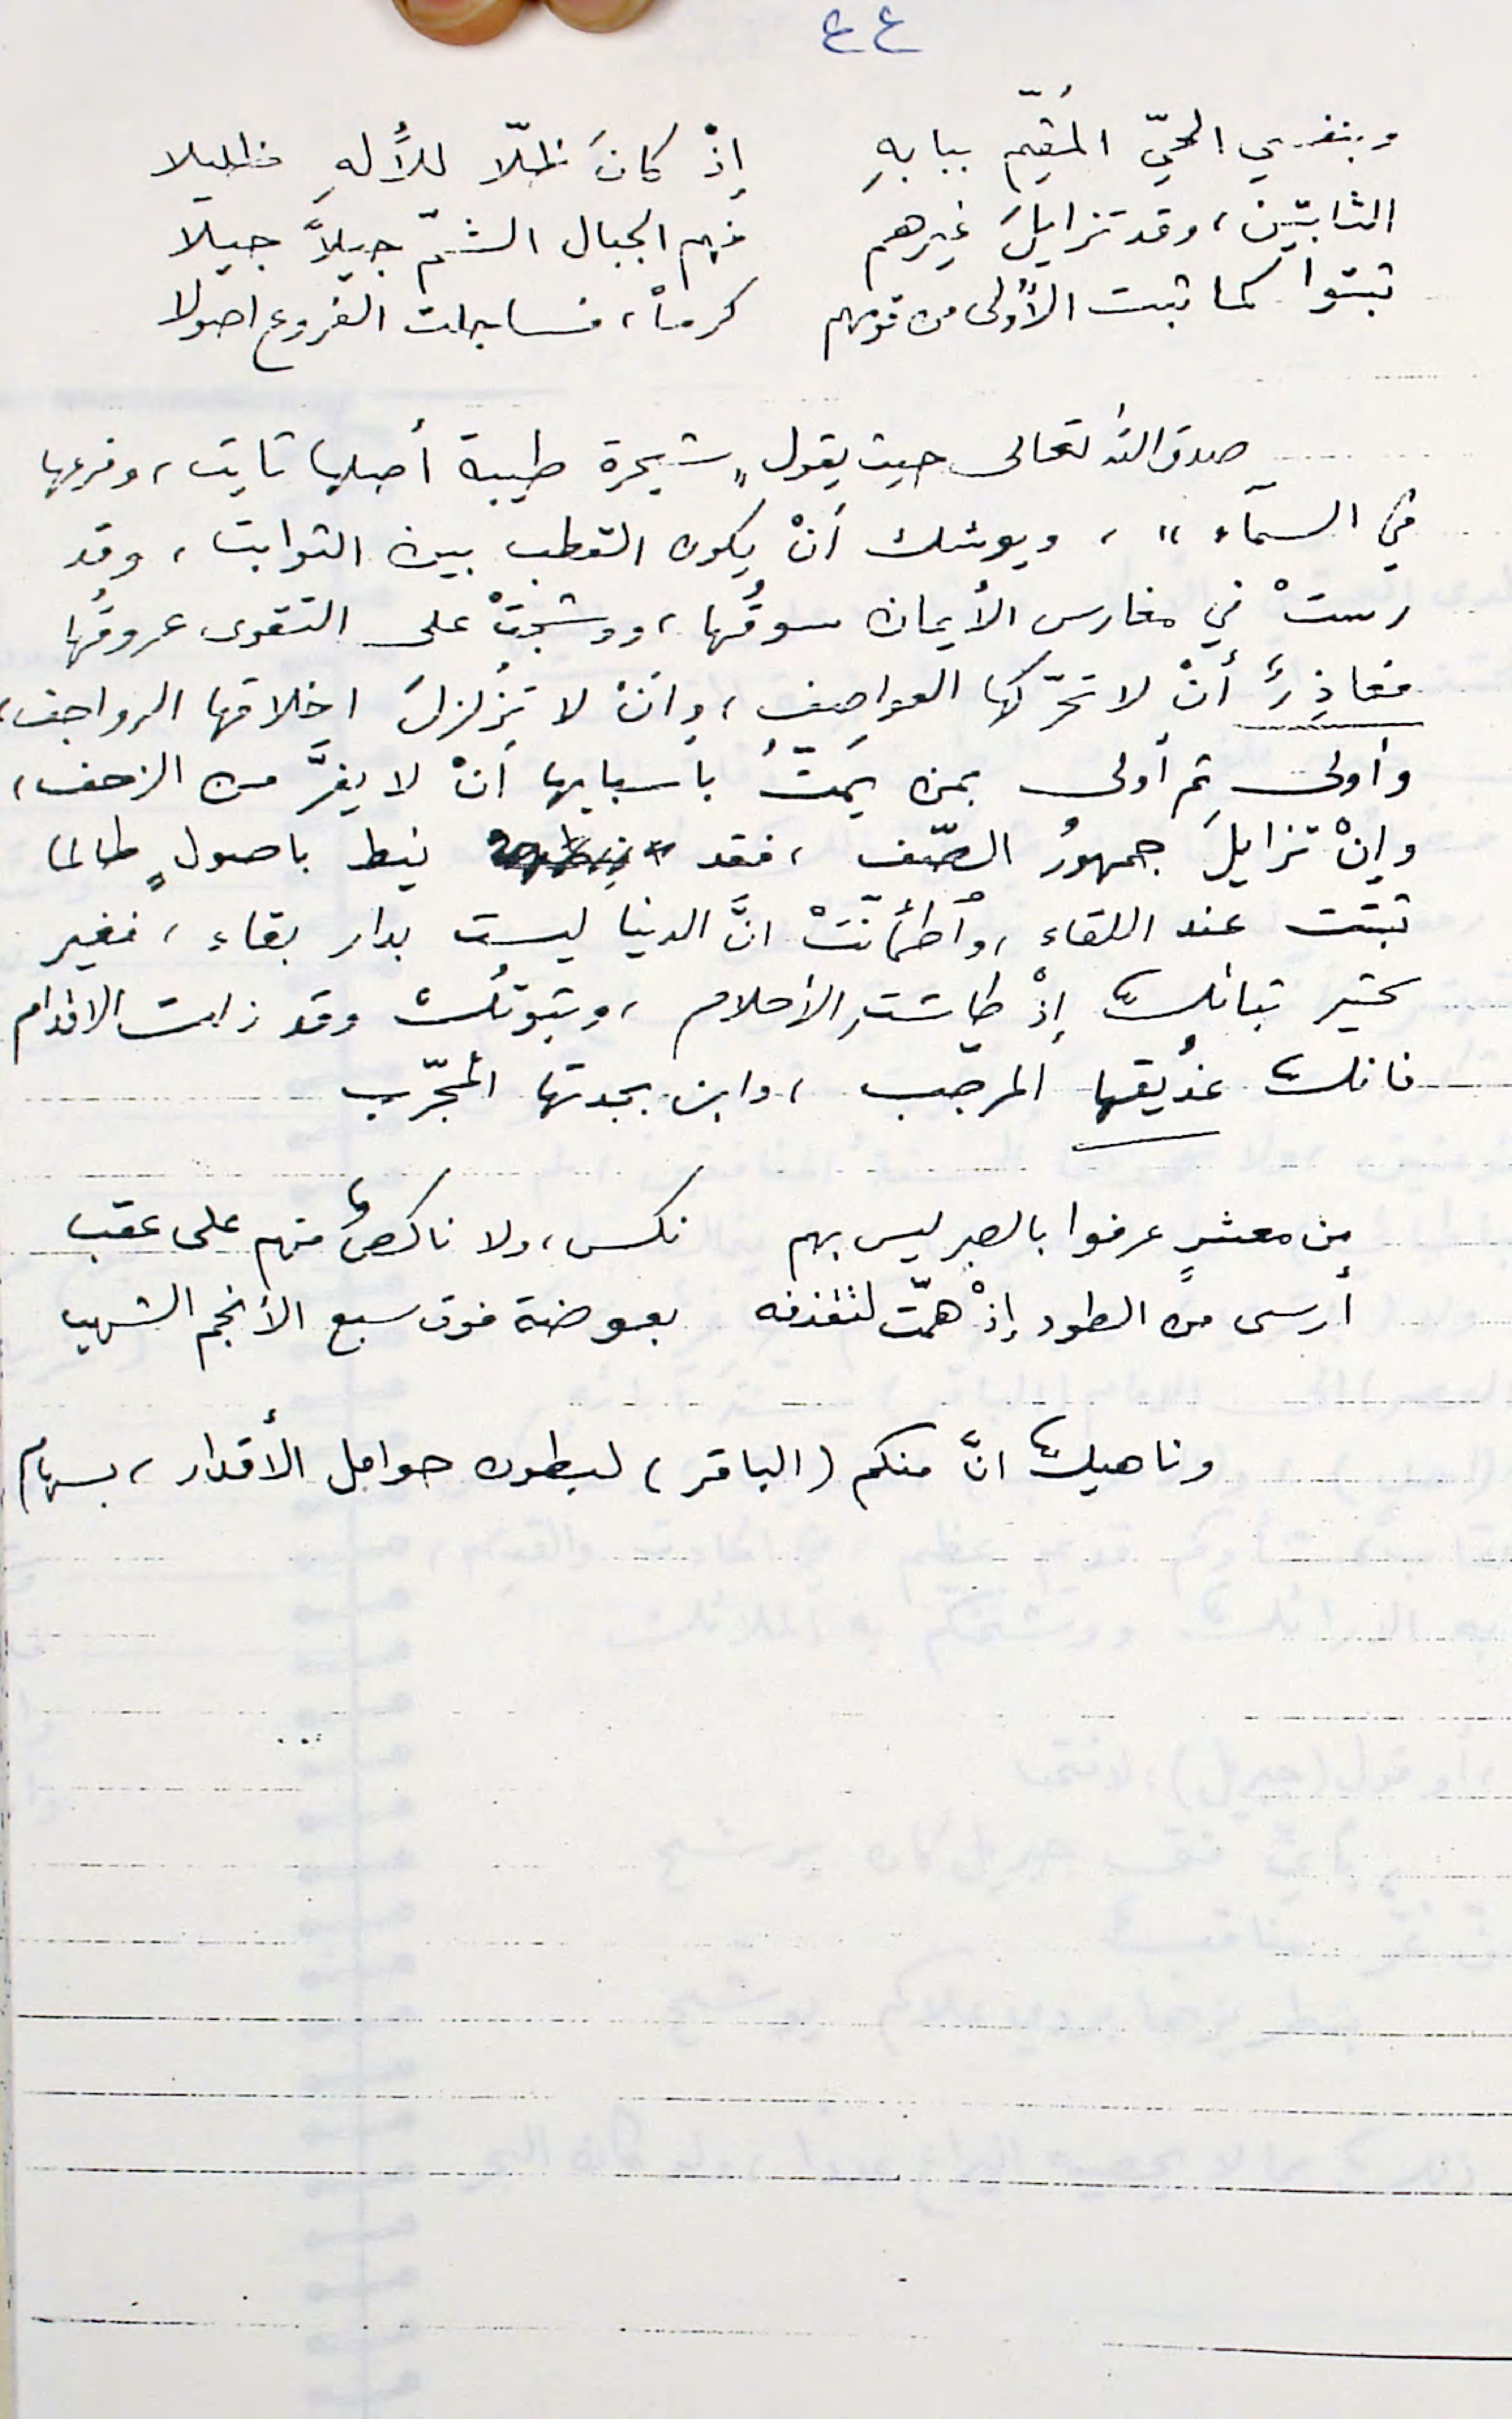 ٤٤
وبنفسي الحيّ المُقيّم ببابهِ إذْ كانَ ظلّا للأُلهِ ظليلا
الثابتين، وقد تزايلَ غيرهم فهم الجبال الشمّ جيلاً جيلا
ثبتوا كما ثبت الأُولى من قومهم كرماً، فساجلت الفروع اصولا
صدق الله تعالى حيث يقول "شجرة طيبة أصلها ثابت، وفرعها
في السمآء"، ويوشك أنْ يكون القطب بين الثوابت، وقد
رستْ في مغارس الأيمان سوقُها، ووشجتْ على التقوى عروقُها
أنْ لا تحرّكها العواصف، وأنْ لا تُزلزلَ اخلاقها الرواجف،
وأولى ثم أولى بمن يَمتّ بأسبابها أنْ لا يفرَّ من الزحف،
وإنْ تزايلَ جمهورُ الصّف، فقد نيط باصولٍ طالما
ثبتت عند اللقاء، وأطمأنّتْ انَّ الدنيا ليست بدار بقاء، فغير
ثباتك إذْ طاشتِ الأحلام، وثبوتك وقد زلت الاقدام
فانك عذيقها المرجّب، وابن بجدتها المجرّب
من معشرٍ عرفوا بالصبر ليس بهم نكس، ولا ناكصٌ منهم على عقب
أرسى من الطود إذْ همّت لتقذفه بعوضة فوق سبع الأنجم الشهب
وناهيك انَّ منكم (الباقر) لبطون حوامل الأقدار، بسهام